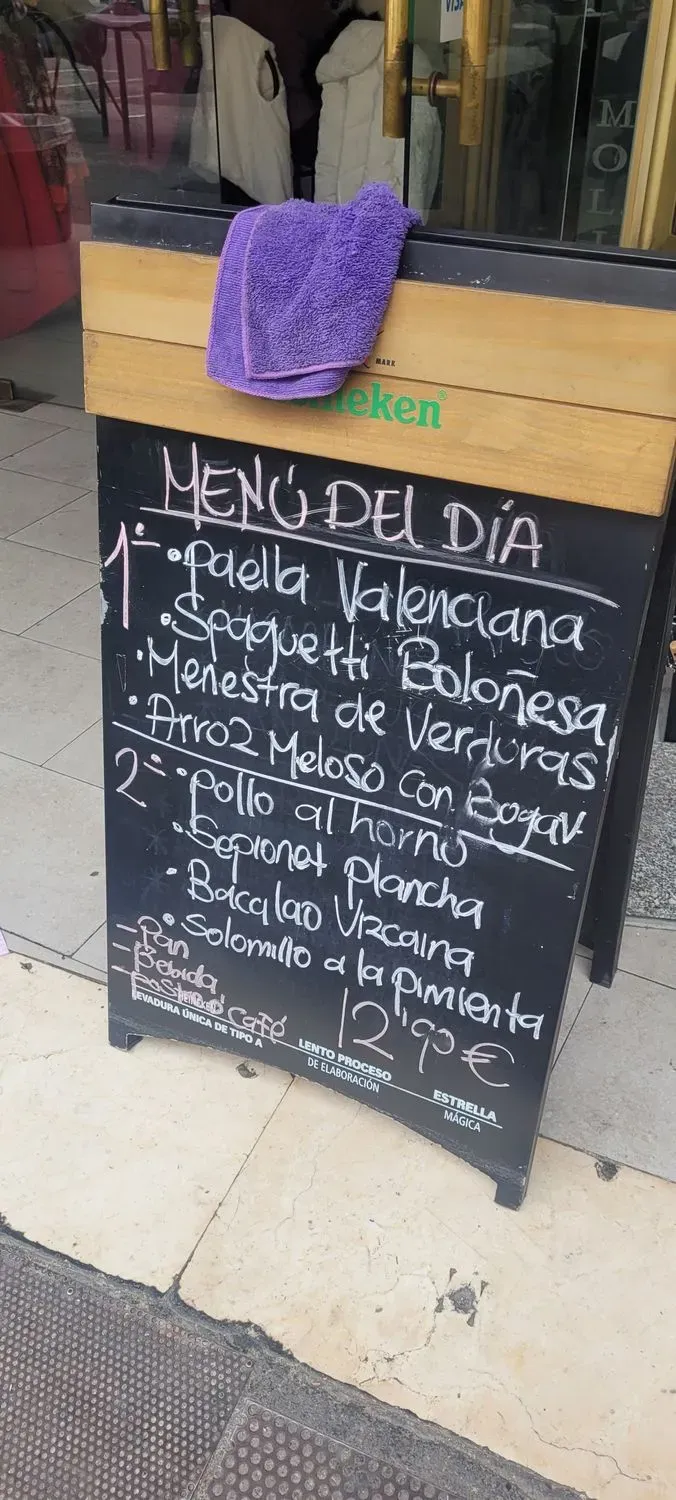 VISA
MOLI
MARK
neken®
MENÚ DEL DÍA
1º • paella Valenciana
• Spaguetti Boloñesa
• Menestra de Verduras
• Arroz Meloso con Bogav
2º • pollo al horno
• Sepionet plancha
• Bacalao Vizcaina
• Solomillo a la pimienta
- Pan
- Bebida
- Postre o café
12'90€
HEINEKEN
LEVADURA ÚNICA DE TIPO A
LENTO PROCESO
DE ELABORACIÓN
ESTRELLA
MÁGICA